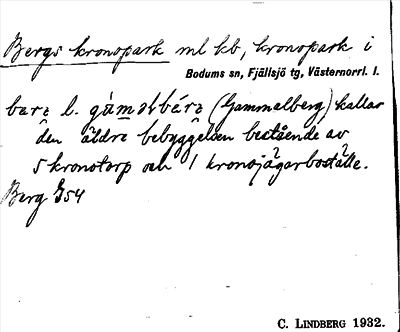 Bergs kronopark ml kb, kronopark i
Bodums sn, Fjällsjö tg, Västernorrl. l.
bara l. (Gammalberg) kallar
den äldre bebyggelsen bestående av
5 kronotorp och 1 kronojägarboställe.
Berg 354
C. LINDBERG 1932.